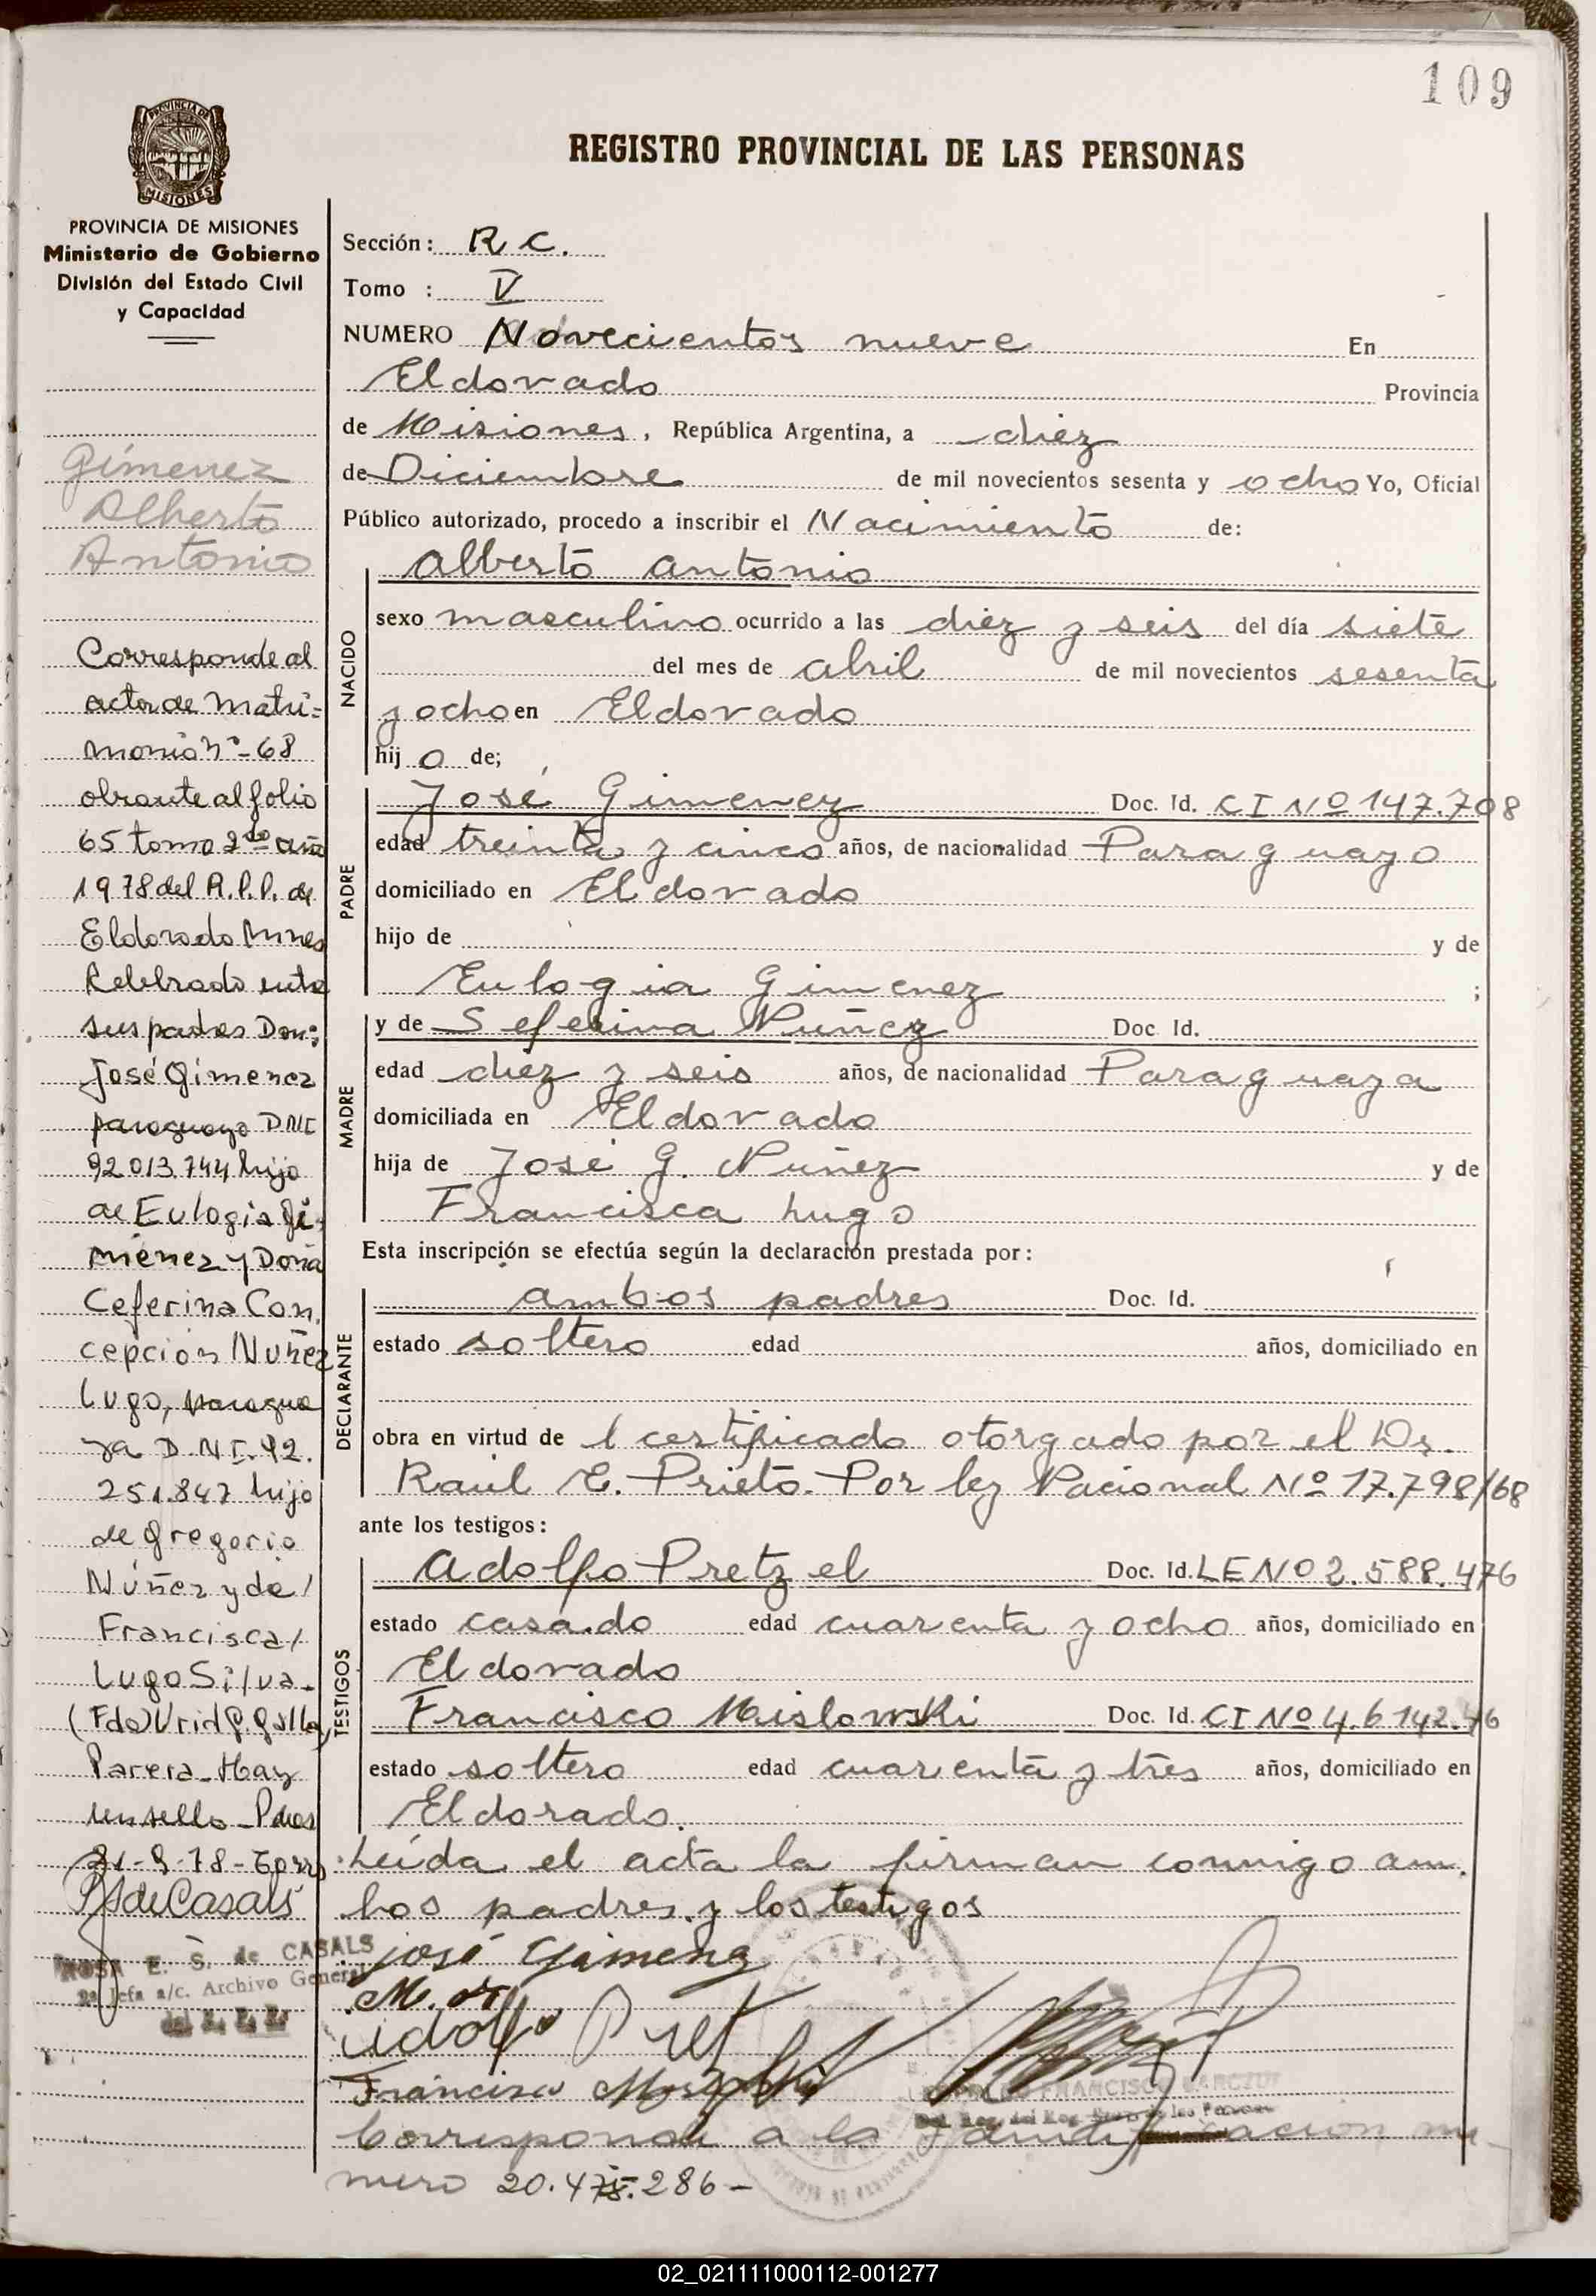 109
REGISTRO PROVINCIAL DE LAS PERSONAS
PROVINCIA DE MISIONES
PROVINCIA DE MISIONES
Ministerio de Gobierno
División del Estado Civil
y Capacidad
Gimenez
Alberto
Antonio
Corresponde al
acta de Matri=
monio nº-68
obrante al folio
65 tomo 2do año
1978 del R.P.P. de
Eldorado Mnes
Celebrado entre
sus padres Don:
José Gimenez
paraguayo DNI
92013.744, hijo
de Eulogia Gi-
menez y Doña
Ceferina Con.
cepción Nuñez
Lugo, paragua
ya D.N.I. 92.
251.847 hijo
de Gregorio
Núñez y de/
Francisca/
Lugo Silva-
(Fdo)
Parera-Hay
un sello-
de Casals
ROSA E. S. de CASALS
2ª Jefa a/c. Archivo General
del R. P. P.
Sección: R C.
Tomo : V
NUMERO Novecientos nueve En
Eldorado Provincia
de Misiones, República Argentina, a diez
de Diciembre de mil novecientos sesenta y ocho Yo, Oficial
Público autorizado, procedo a inscribir el Nacimiento de:
NACIDO
Alberto Antonio
sexo masculino ocurrido a las diez y seis del día siete
del mes de abril de mil novecientos sesenta
y ocho en Eldorado
hij o de;
PADRE
José Gimenez Doc. Id. CI Nº 147.708
edad treinta y cinco años, de nacionalidad Paraguayo
domiciliado en Eldorado
hijo de y de
Eulogia Gimenez ;
MADRE
y de Seferina Nuñez Doc. Id.
edad diez y seis años, de nacionalidad Paraguaya
domiciliada en Eldorado
hija de José G. Nuñez y de
Francisca Lugo
Esta inscripción se efectúa según la declaración prestada por:
DECLARANTE
ambos padres Doc. Id.
estado soltero edad años, domiciliado en
obra en virtud de 1 certificado otorgado por el Dr.
Raúl E. Prieto. Por ley Nacional Nº 17.798/68
ante los testigos:
TESTIGOS
Adolfo Pretzel Doc. Id. LE Nº 2.588.476
estado casado edad cuarenta y ocho años, domiciliado en
Eldorado
Francisco Mislowski Doc. Id. CI Nº 4.6142.46
estado soltero edad cuarenta y tres años, domiciliado en
Eldorado.
Leída el acta la firman conmigo am.
bos padres y los testigos
José Gimenez
Adolfo Pret
Francisco
FRANCISCO
Corresponde a la nú
mero 20.475.286-
02_021111000112-001277